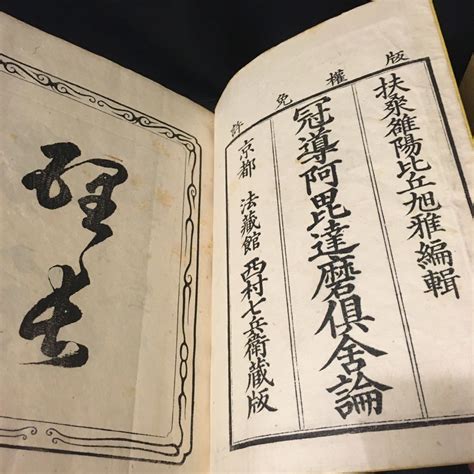 版權免許
扶桒雒陽比丘旭雅編輯
冠導阿毘達磨俱舍論
京都 法藏館 西村七兵衛藏版
理長